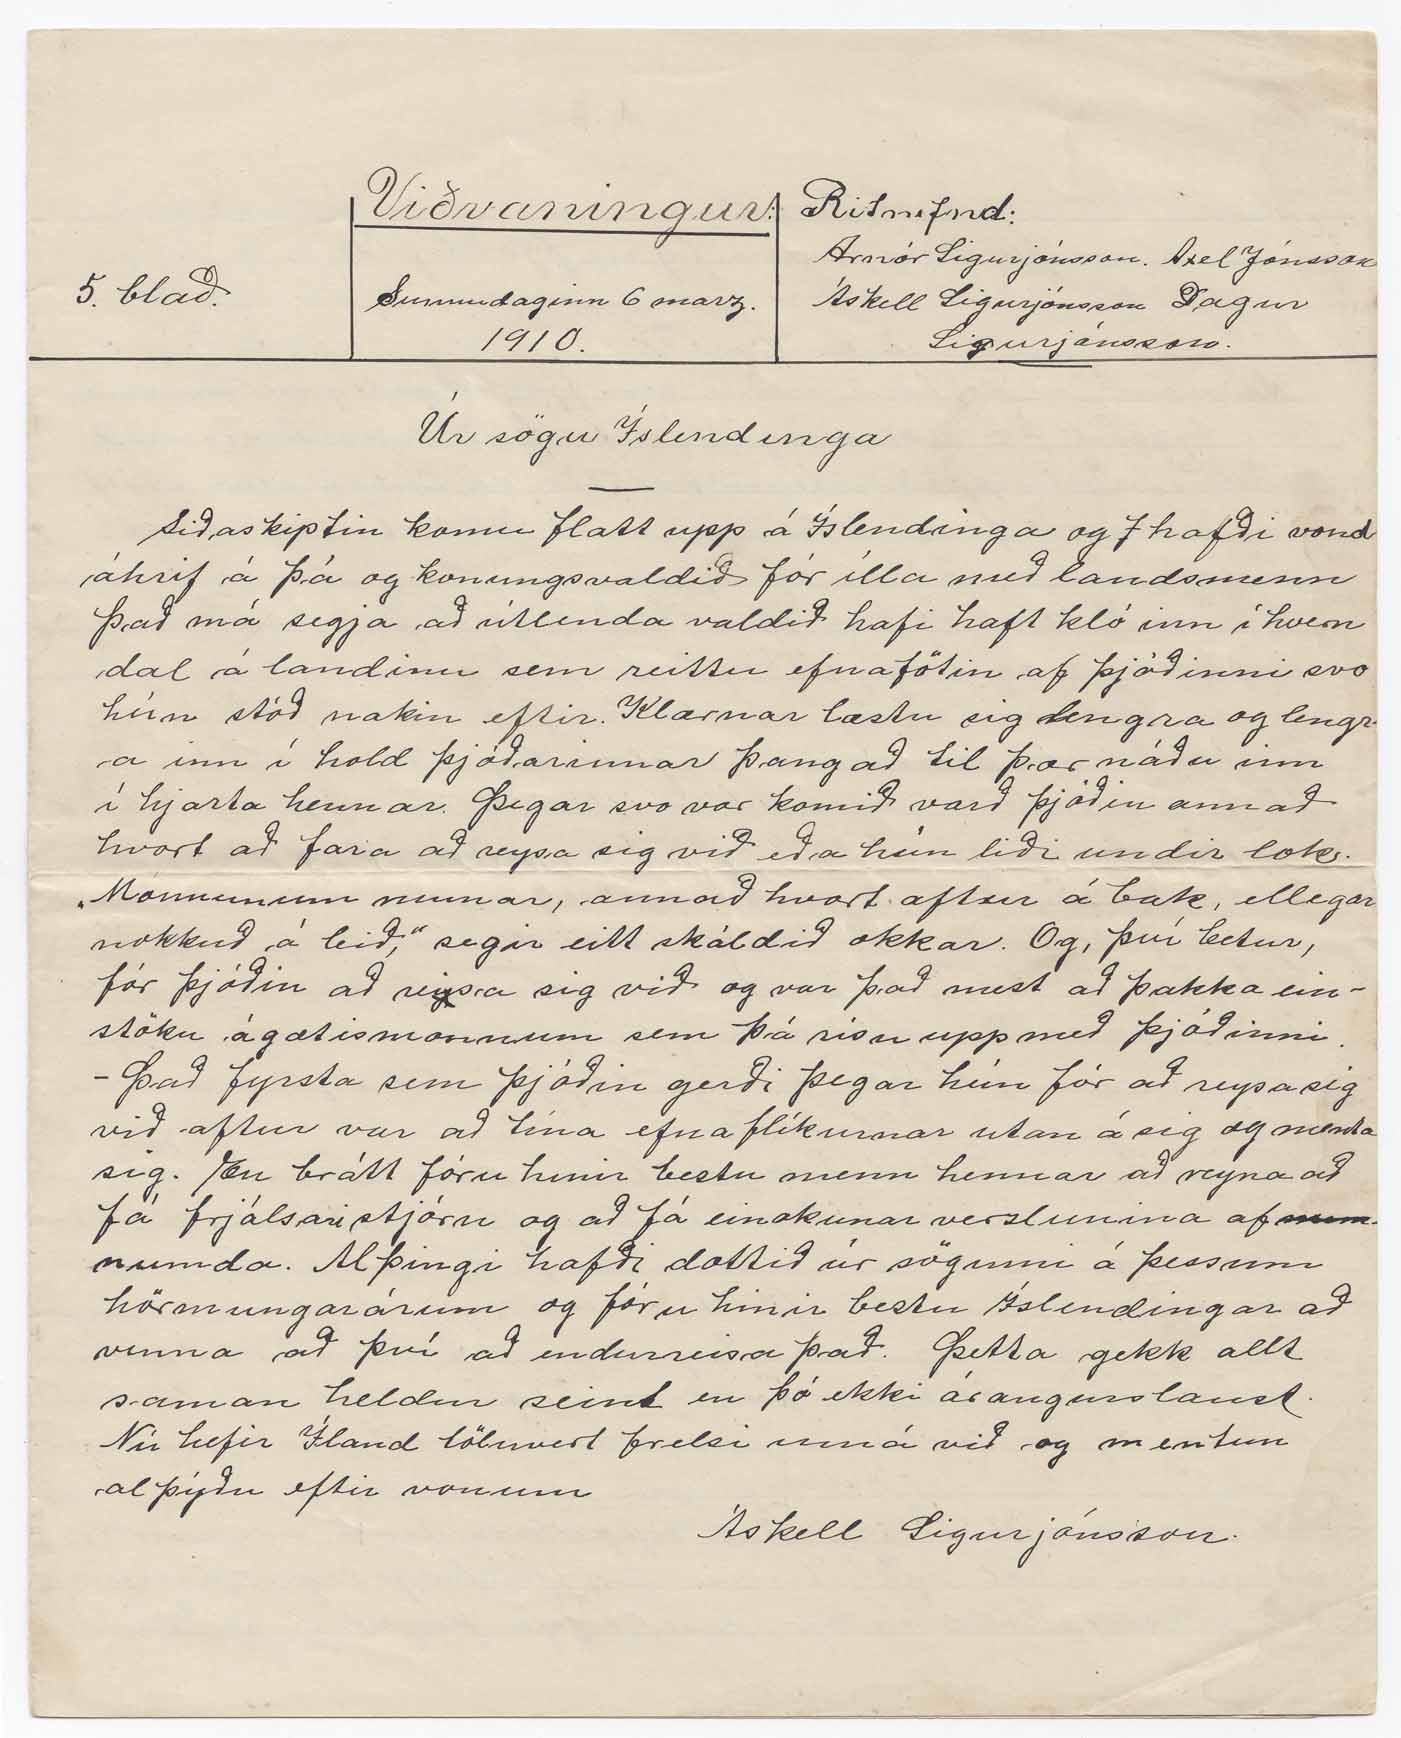 Viðvaningur:
Ritnefnd:
Arnór Sigurjónsson. Axel Jónsson
5. blað.
Sunnudaginn 6 marz.
Áskell Sigurjónsson Dagur
1910.
Sigurjónsson.
Úr sögu Íslendinga
Siðaskiptin komu flatt upp á Íslendinga og hafði vond
áhrif á þá og konungsvaldið fór illa með landsmenn
Það má segja að útlenda valdið hafi haft kló inn í hvern
dal á landinu sem reittu efnafötin af þjóðinni svo
hún stóð nakin eftir. Klærnar læstu sig lengra og lengr-
a inn í hold þjóðarinnar þangað til þær náðu inn
í hjarta hennar. Þegar svo var komið varð þjóðin annað
hvort að fara að reysa sig við eða hún liði undir lok.
„Mönnunum munar, annað hvort aftur á bak, ellegar
nokkuð á leið," segir eitt skáldið okkar. Og, því betur,
fór þjóðin að reysa sig við og var það mest að þakka ein-
stöku ágætismönnum sem þá risu upp með þjóðinni.
- Það fyrsta sem þjóðin gerði þegar hún fór að reysa sig
við aftur var að tína efnaflíkurnar utan á sig og menta
sig. En brátt fóru hinir bestu menn hennar að reyna að
fá frjálsari stjórn og að fá einokunar verslunina af
numda. Alþingi hafði dottið úr sögunni á þessum
hörmungarárum og fóru hinir bestu Íslendingar að
vinna að því að endurreisa það. Þetta gekk allt
saman heldur seint en þó ekki árangurslaust.
Nú hefir Íland töluvert frelsi inná við og mentun
alþýðu eftir vonum
Áskell Sigurjónsson.